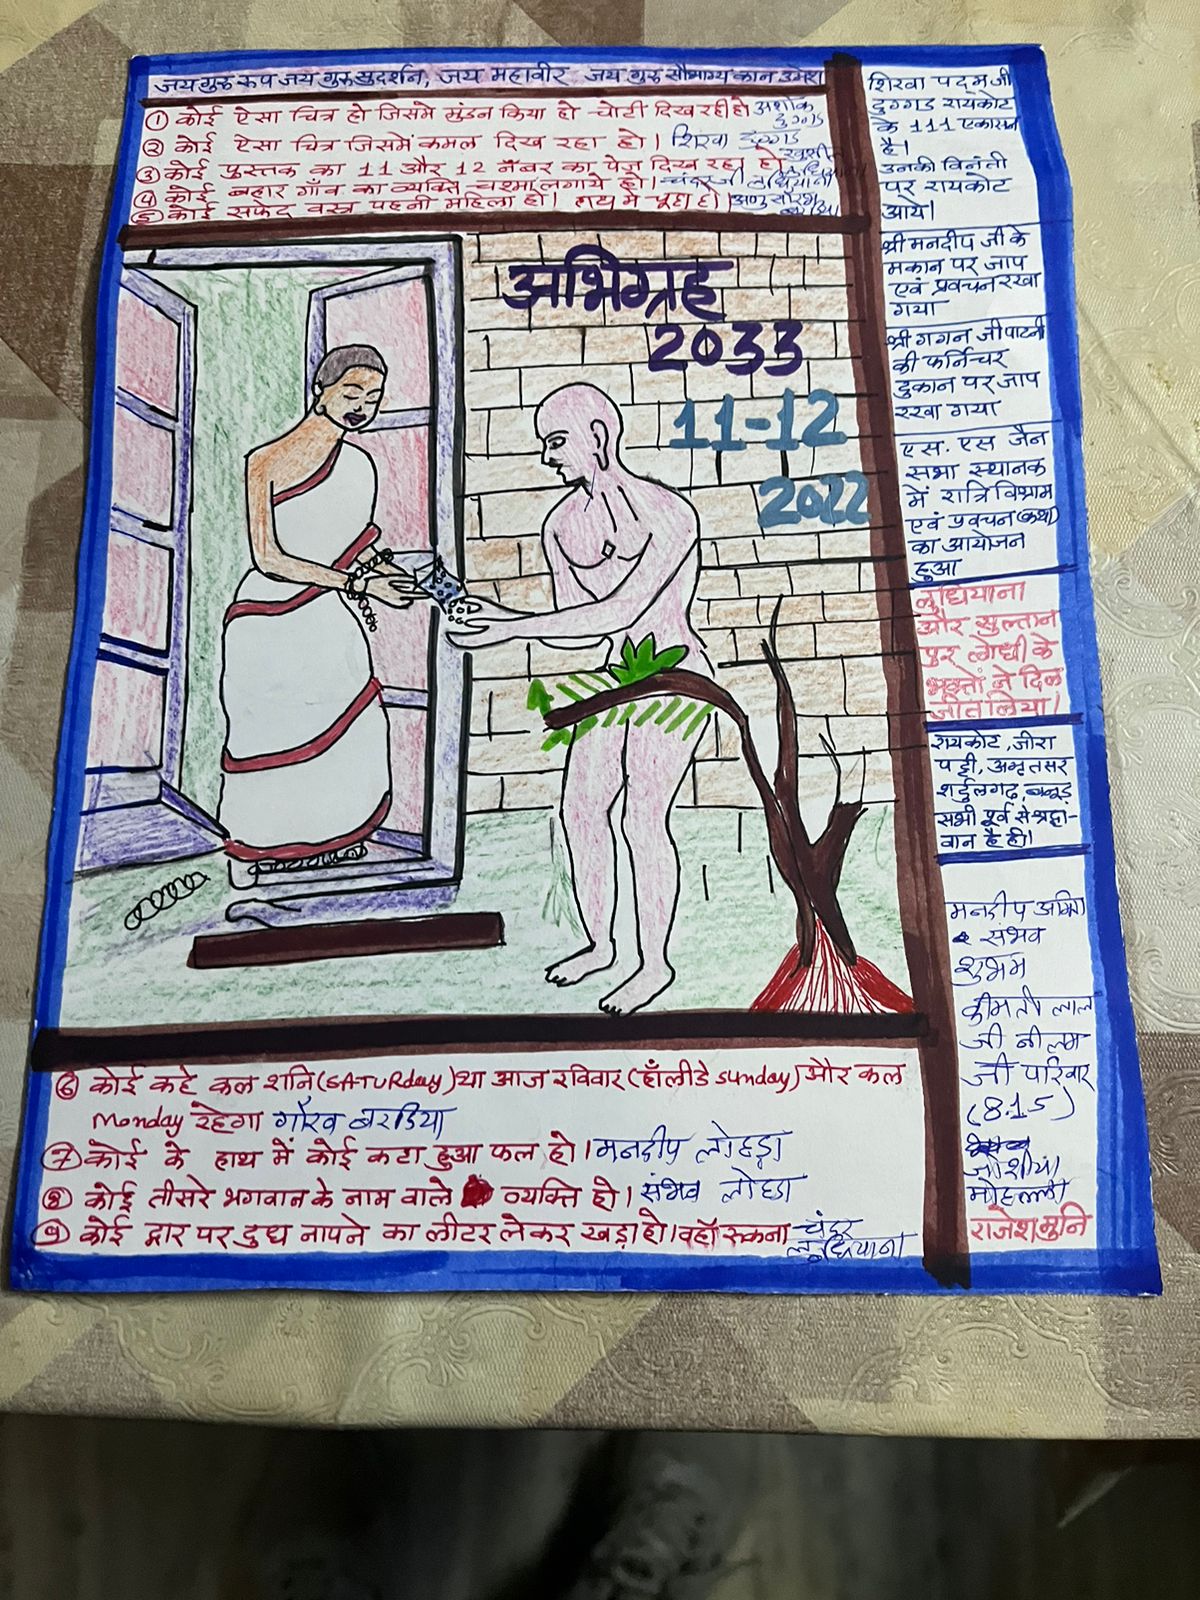 जय गुरु रूप जय गुरु सुदर्शन, जय महावीर जय गुरु सौभाग्य कान उमेश
① कोई ऐसा चित्र हो जिसमे मुंडन किया हो चोटी दिख रही हो अशोक
दुग्गड
② कोई ऐसा चित्र जिसमें कमल दिख रहा हो। शिखा दुग्गड
③ कोई पुस्तक का 11 और 12 नंबर का पेज दिख रहा हो
④ कोई बहार गाँव का व्यक्ति चश्मा लगाये हो।
⑤ कोई सफेद वस्त्र पहनी महिला हो। हाथ मे चूहा हो।
अभिग्रह
2033
11-12
2022
⑥ कोई कहे कल शनि (SATURday) था आज रविवार (हॉलीडे sunday) और कल
Monday रहेगा गौरव बरडिया
⑦ कोई के हाथ में कोई कटा हुआ फल हो। मनदीप लोहड़ा
⑧ कोई तीसरे भगवान के नाम वाले व्यक्ति हो। संभव लोहडा
⑨ कोई द्वार पर दुध नापने का लीटर लेकर खड़ा हो। वहाँ रुकना चंदूर
लुधियाना
शिखा पद्म जी
दुग्गड रायकोट
के 111 एकासन
है।
उनकी विनंती
पर रायकोट
आये।
श्री मनदीप जी के
मकान पर जाप
एवं प्रवचन रखा
गया
श्री गगन जी पाटनी
की फर्निचर
दुकान पर जाप
रखा गया
एस. एस जैन
सभा स्थानक
में रात्रि विश्राम
एवं प्रवचन (कथा)
का आयोजन
हुआ
लुधियाना
और सुल्तान
पुर लोधी के
भक्तों ने दिल
जीत लिया।
रायकोट, जीरा
पट्टी, अमृतसर
शर्दुलगढ़,
सभी पूर्व से श्रद्धा-
वान है ही।
मनदीप
संभव
शुभम
कीमती लाल
जी नीलम
जी परिवार
(8:15)
जोशीयां
मोहल्ला
राजेश मुनि